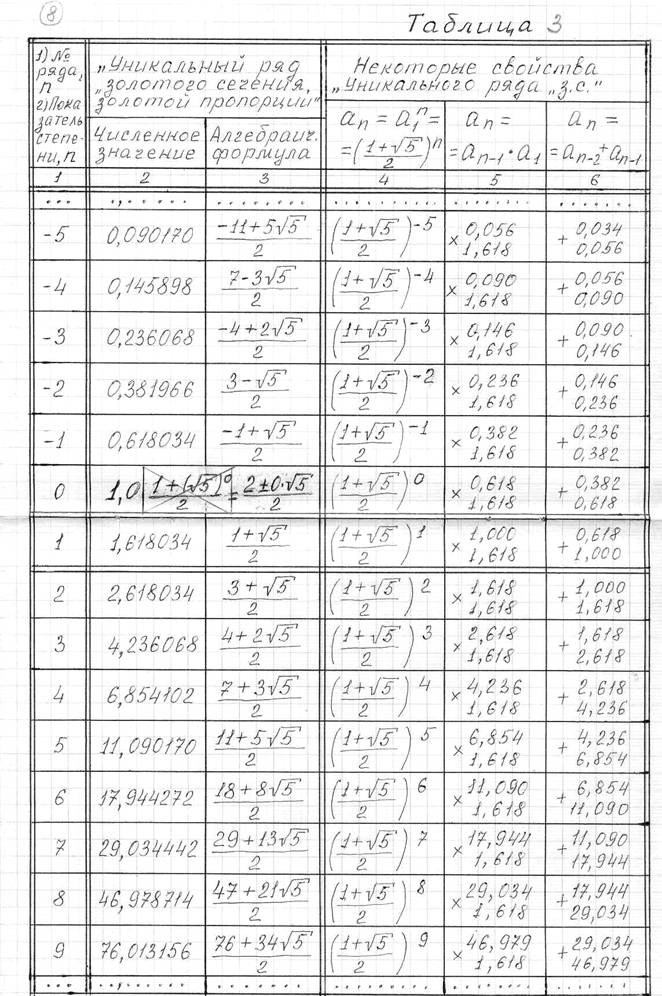 8
Таблица 3
1) № ряда, n 2) Показатель степени, n | "Уникальный ряд "золотого сечения, золотой пропорции" | Некоторые свойства "Уникального ряда "з.с."
Численное значение | Алгебраич. формула | aₙ = a₁ⁿ = =((1+√5)/2)ⁿ | aₙ = =aₙ₋₁·a₁ | aₙ = =aₙ₋₂+aₙ₋₁
1 | 2 | 3 | 4 | 5 | 6
... | ... | ... | ... | ... | ...
-5 | 0,090170 | (-11+5√5)/2 | ((1+√5)/2)⁻⁵ | × 0,056 1,618 | + 0,034 0,056
-4 | 0,145898 | (7-3√5)/2 | ((1+√5)/2)⁻⁴ | × 0,090 1,618 | + 0,056 0,090
-3 | 0,236068 | (-4+2√5)/2 | ((1+√5)/2)⁻³ | × 0,146 1,618 | + 0,090 0,146
-2 | 0,381966 | (3-√5)/2 | ((1+√5)/2)⁻² | × 0,236 1,618 | + 0,146 0,236
-1 | 0,618034 | (-1+√5)/2 | ((1+√5)/2)⁻¹ | × 0,382 1,618 | + 0,236 0,382
0 | 1,0 | (1+(√5)⁰)/2 = (2±0·√5)/2 | ((1+√5)/2)⁰ | × 0,618 1,618 | + 0,382 0,618
1 | 1,618034 | (1+√5)/2 | ((1+√5)/2)¹ | × 1,000 1,618 | + 0,618 1,000
2 | 2,618034 | (3+√5)/2 | ((1+√5)/2)² | × 1,618 1,618 | + 1,000 1,618
3 | 4,236068 | (4+2√5)/2 | ((1+√5)/2)³ | × 2,618 1,618 | + 1,618 2,618
4 | 6,854102 | (7+3√5)/2 | ((1+√5)/2)⁴ | × 4,236 1,618 | + 2,618 4,236
5 | 11,090170 | (11+5√5)/2 | ((1+√5)/2)⁵ | × 6,854 1,618 | + 4,236 6,854
6 | 17,944272 | (18+8√5)/2 | ((1+√5)/2)⁶ | × 11,090 1,618 | + 6,854 11,090
7 | 29,034442 | (29+13√5)/2 | ((1+√5)/2)⁷ | × 17,944 1,618 | + 11,090 17,944
8 | 46,978714 | (47+21√5)/2 | ((1+√5)/2)⁸ | × 29,034 1,618 | + 17,944 29,034
9 | 76,013156 | (76+34√5)/2 | ((1+√5)/2)⁹ | × 46,979 1,618 | + 29,034 46,979
... | ... | ... | ... | ... | ...